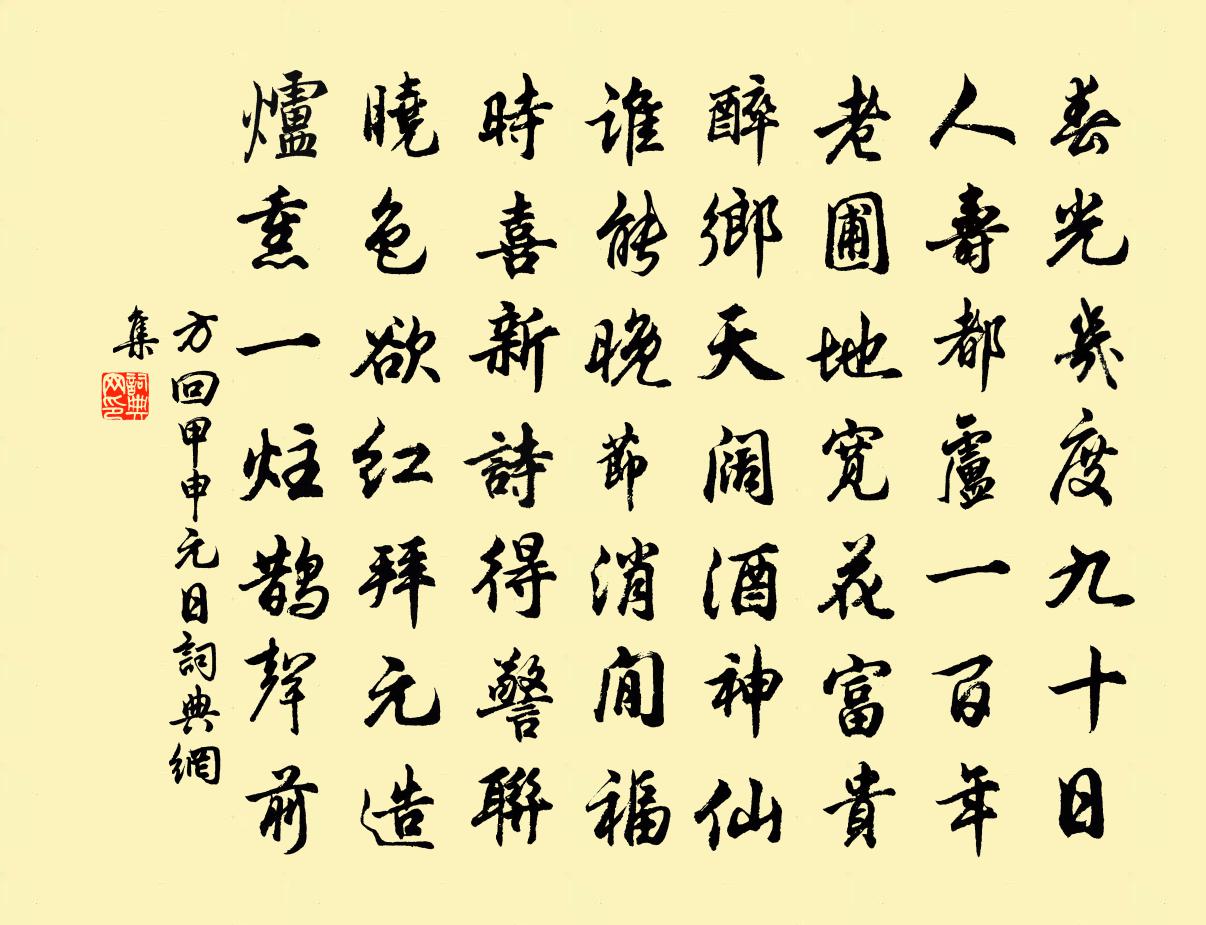 春光幾度九十日
人壽都盧一百年
老圃地寬花富貴
醉鄉天闊酒神仙
誰能晚節消閒福
時喜新詩得警聯
曉色欲紅拜元造
爐熏一炷鵲聲前
方回甲申元日詞典網
集
詞典網印